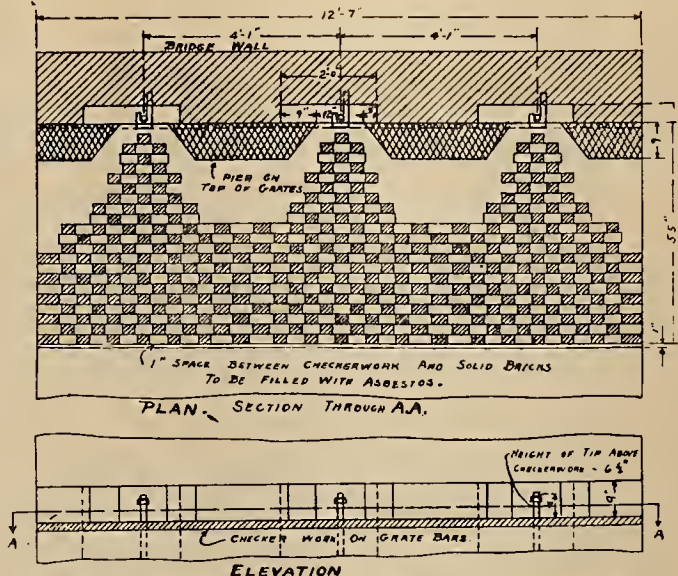 12'-7"
4'-1" 4'-1"
BRIDGE WALL
2'-0"
9" 12"
9"
PIER ON
TOP OF GRATES
55"
1"
1" SPACE BETWEEN CHECKERWORK AND SOLID BRICKS
TO BE FILLED WITH ASBESTOS.
PLAN. SECTION THROUGH A.A.
HEIGHT OF TIP ABOVE
CHECKERWORK - 6½"
9"
A A
CHECKER WORK ON GRATE BARS.
ELEVATION